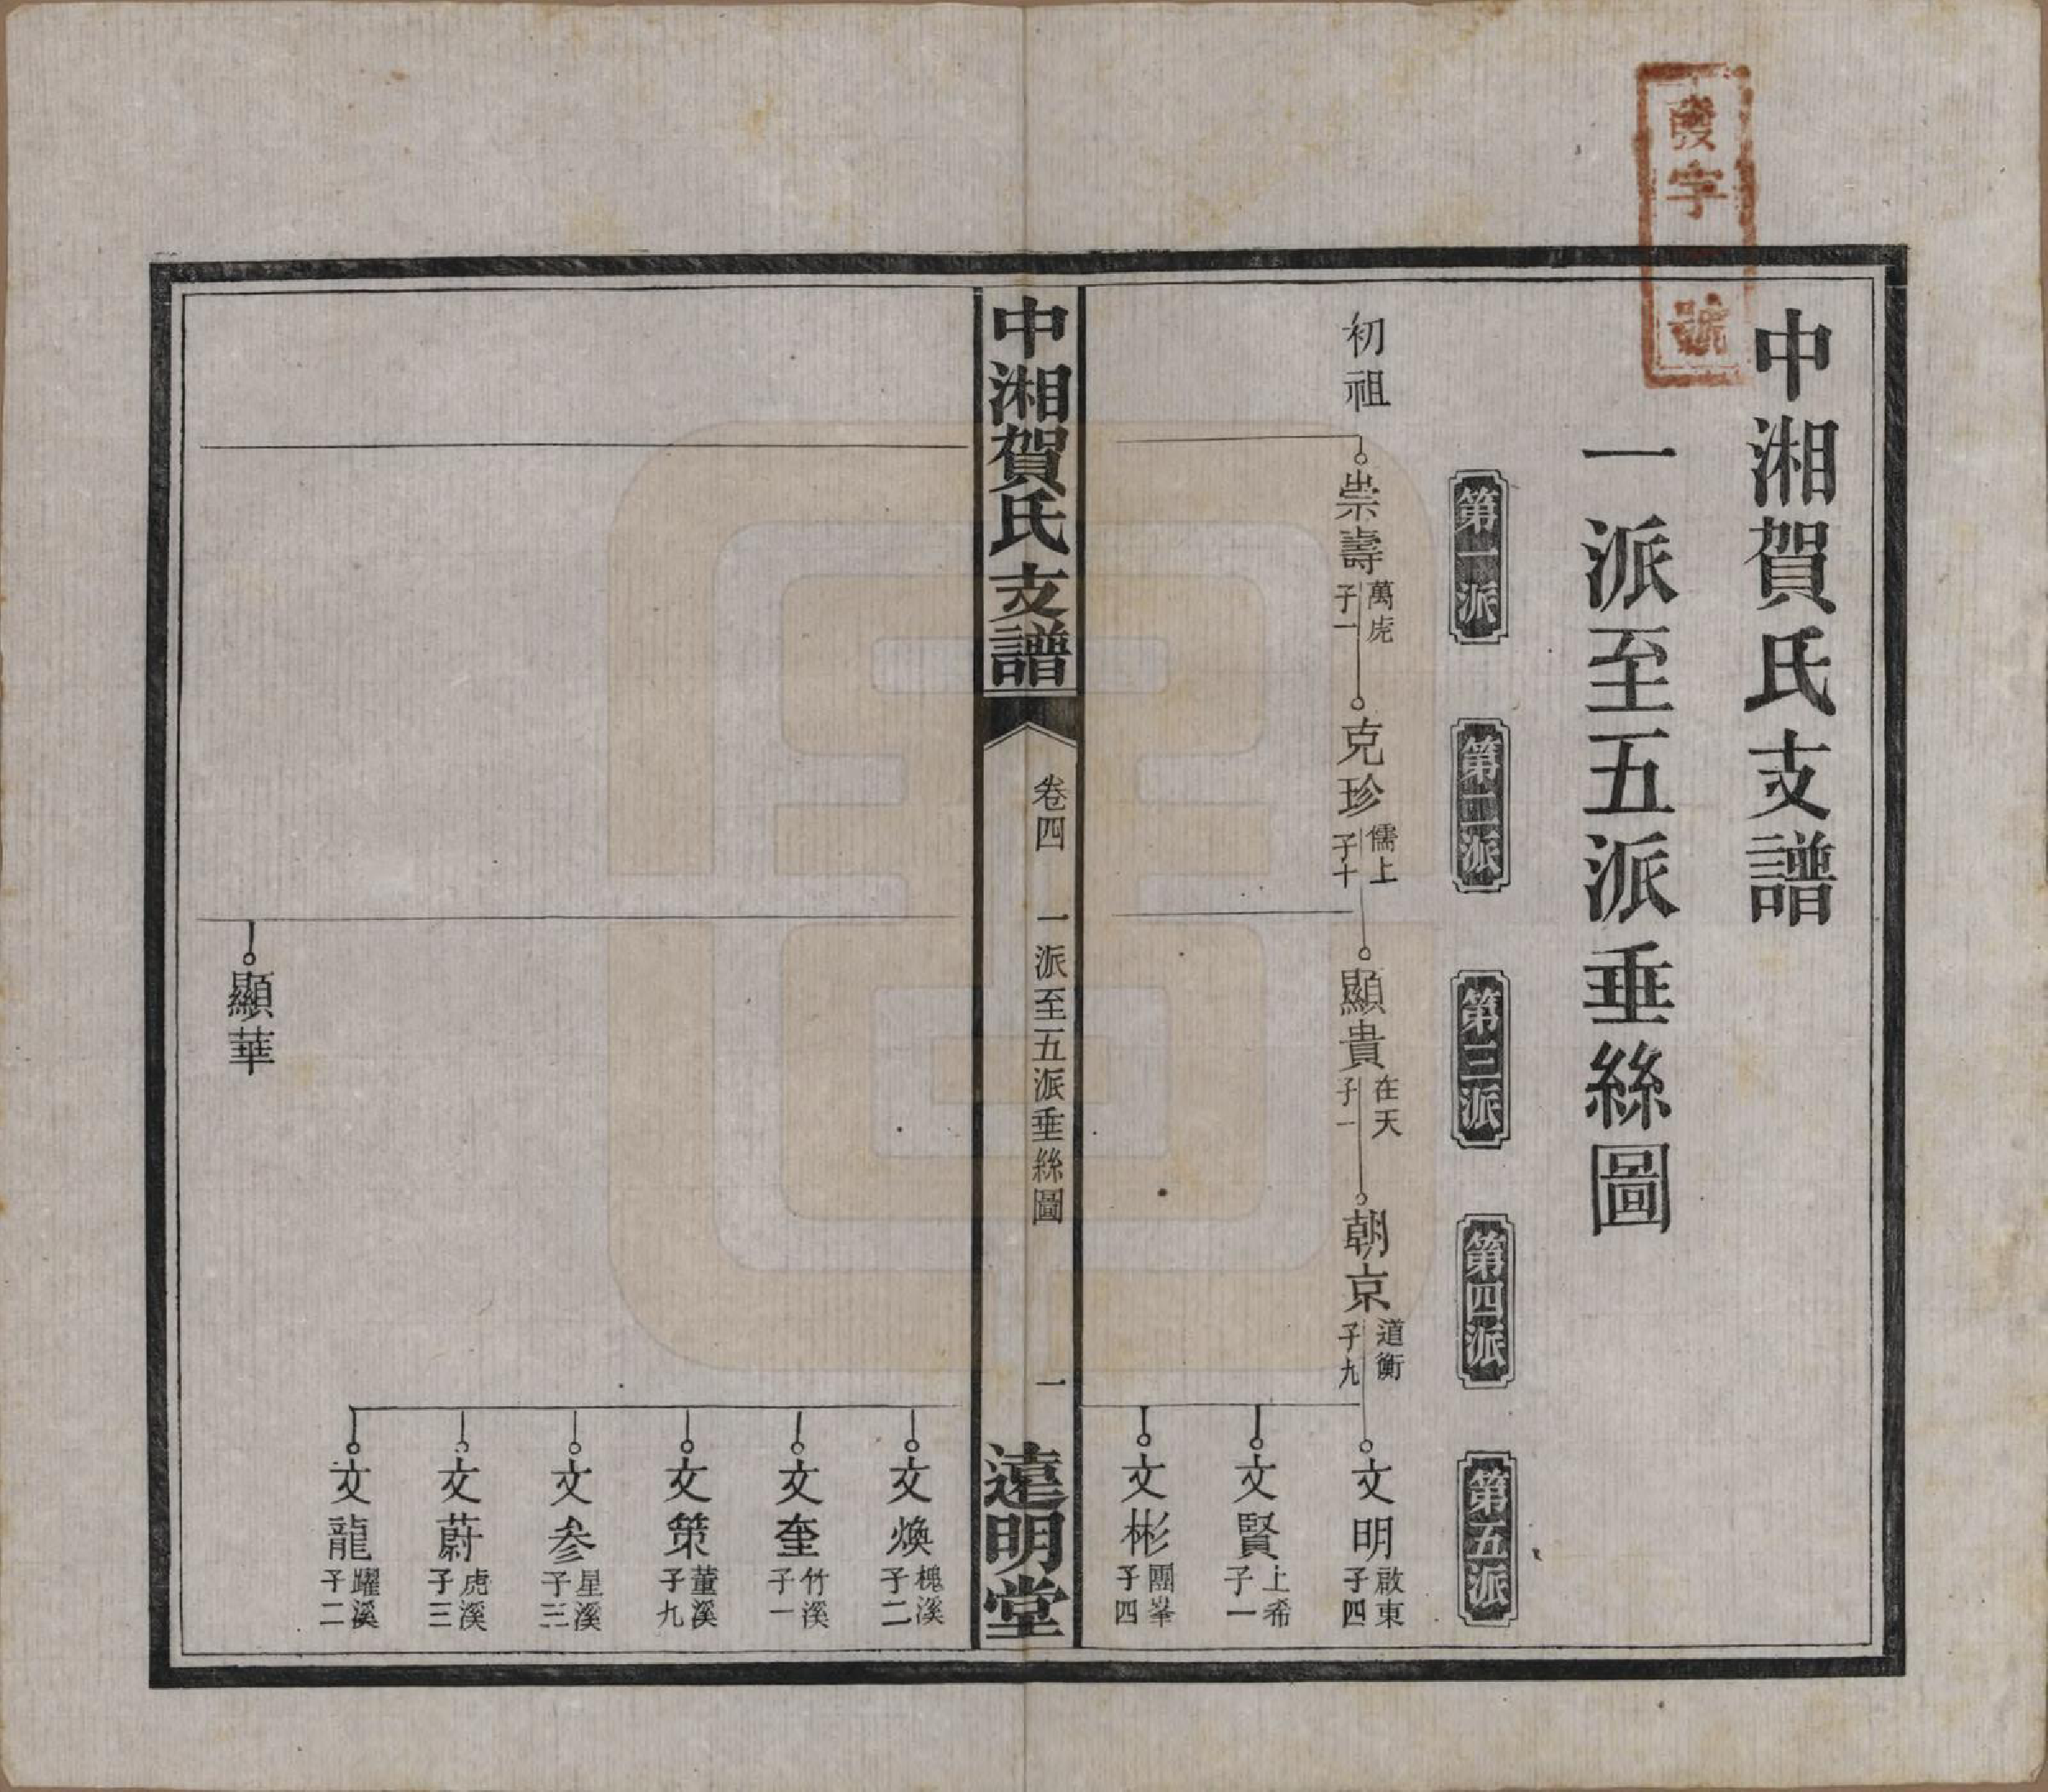 中湘賀氏支譜
一派至五派垂絲圖
第一派
第二派
第三派
第四派
第五派
初祖
崇壽
萬虎
子一
克珍
儒上
子十
顯貴
在天
子一
朝京
道衡
子九
文明
啟東
子四
文賢
上希
子一
文彬
團峯
子四
中湘賀氏支譜
卷四
一派至五派垂絲圖
一
遠明堂
文煥
槐溪
子二
文奎
竹溪
子一
文策
董溪
子九
文參
星溪
子三
文蔚
虎溪
子三
文龍
躍溪
子二
顯華
字
號